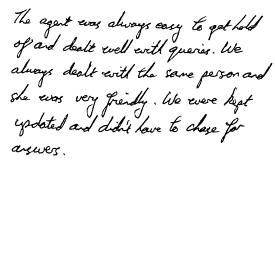 The agent was always easy to get hold
of and dealt well with queries. We
always dealt with the same person and
she was very friendly. We were kept
updated and didn't have to chase for
answers.